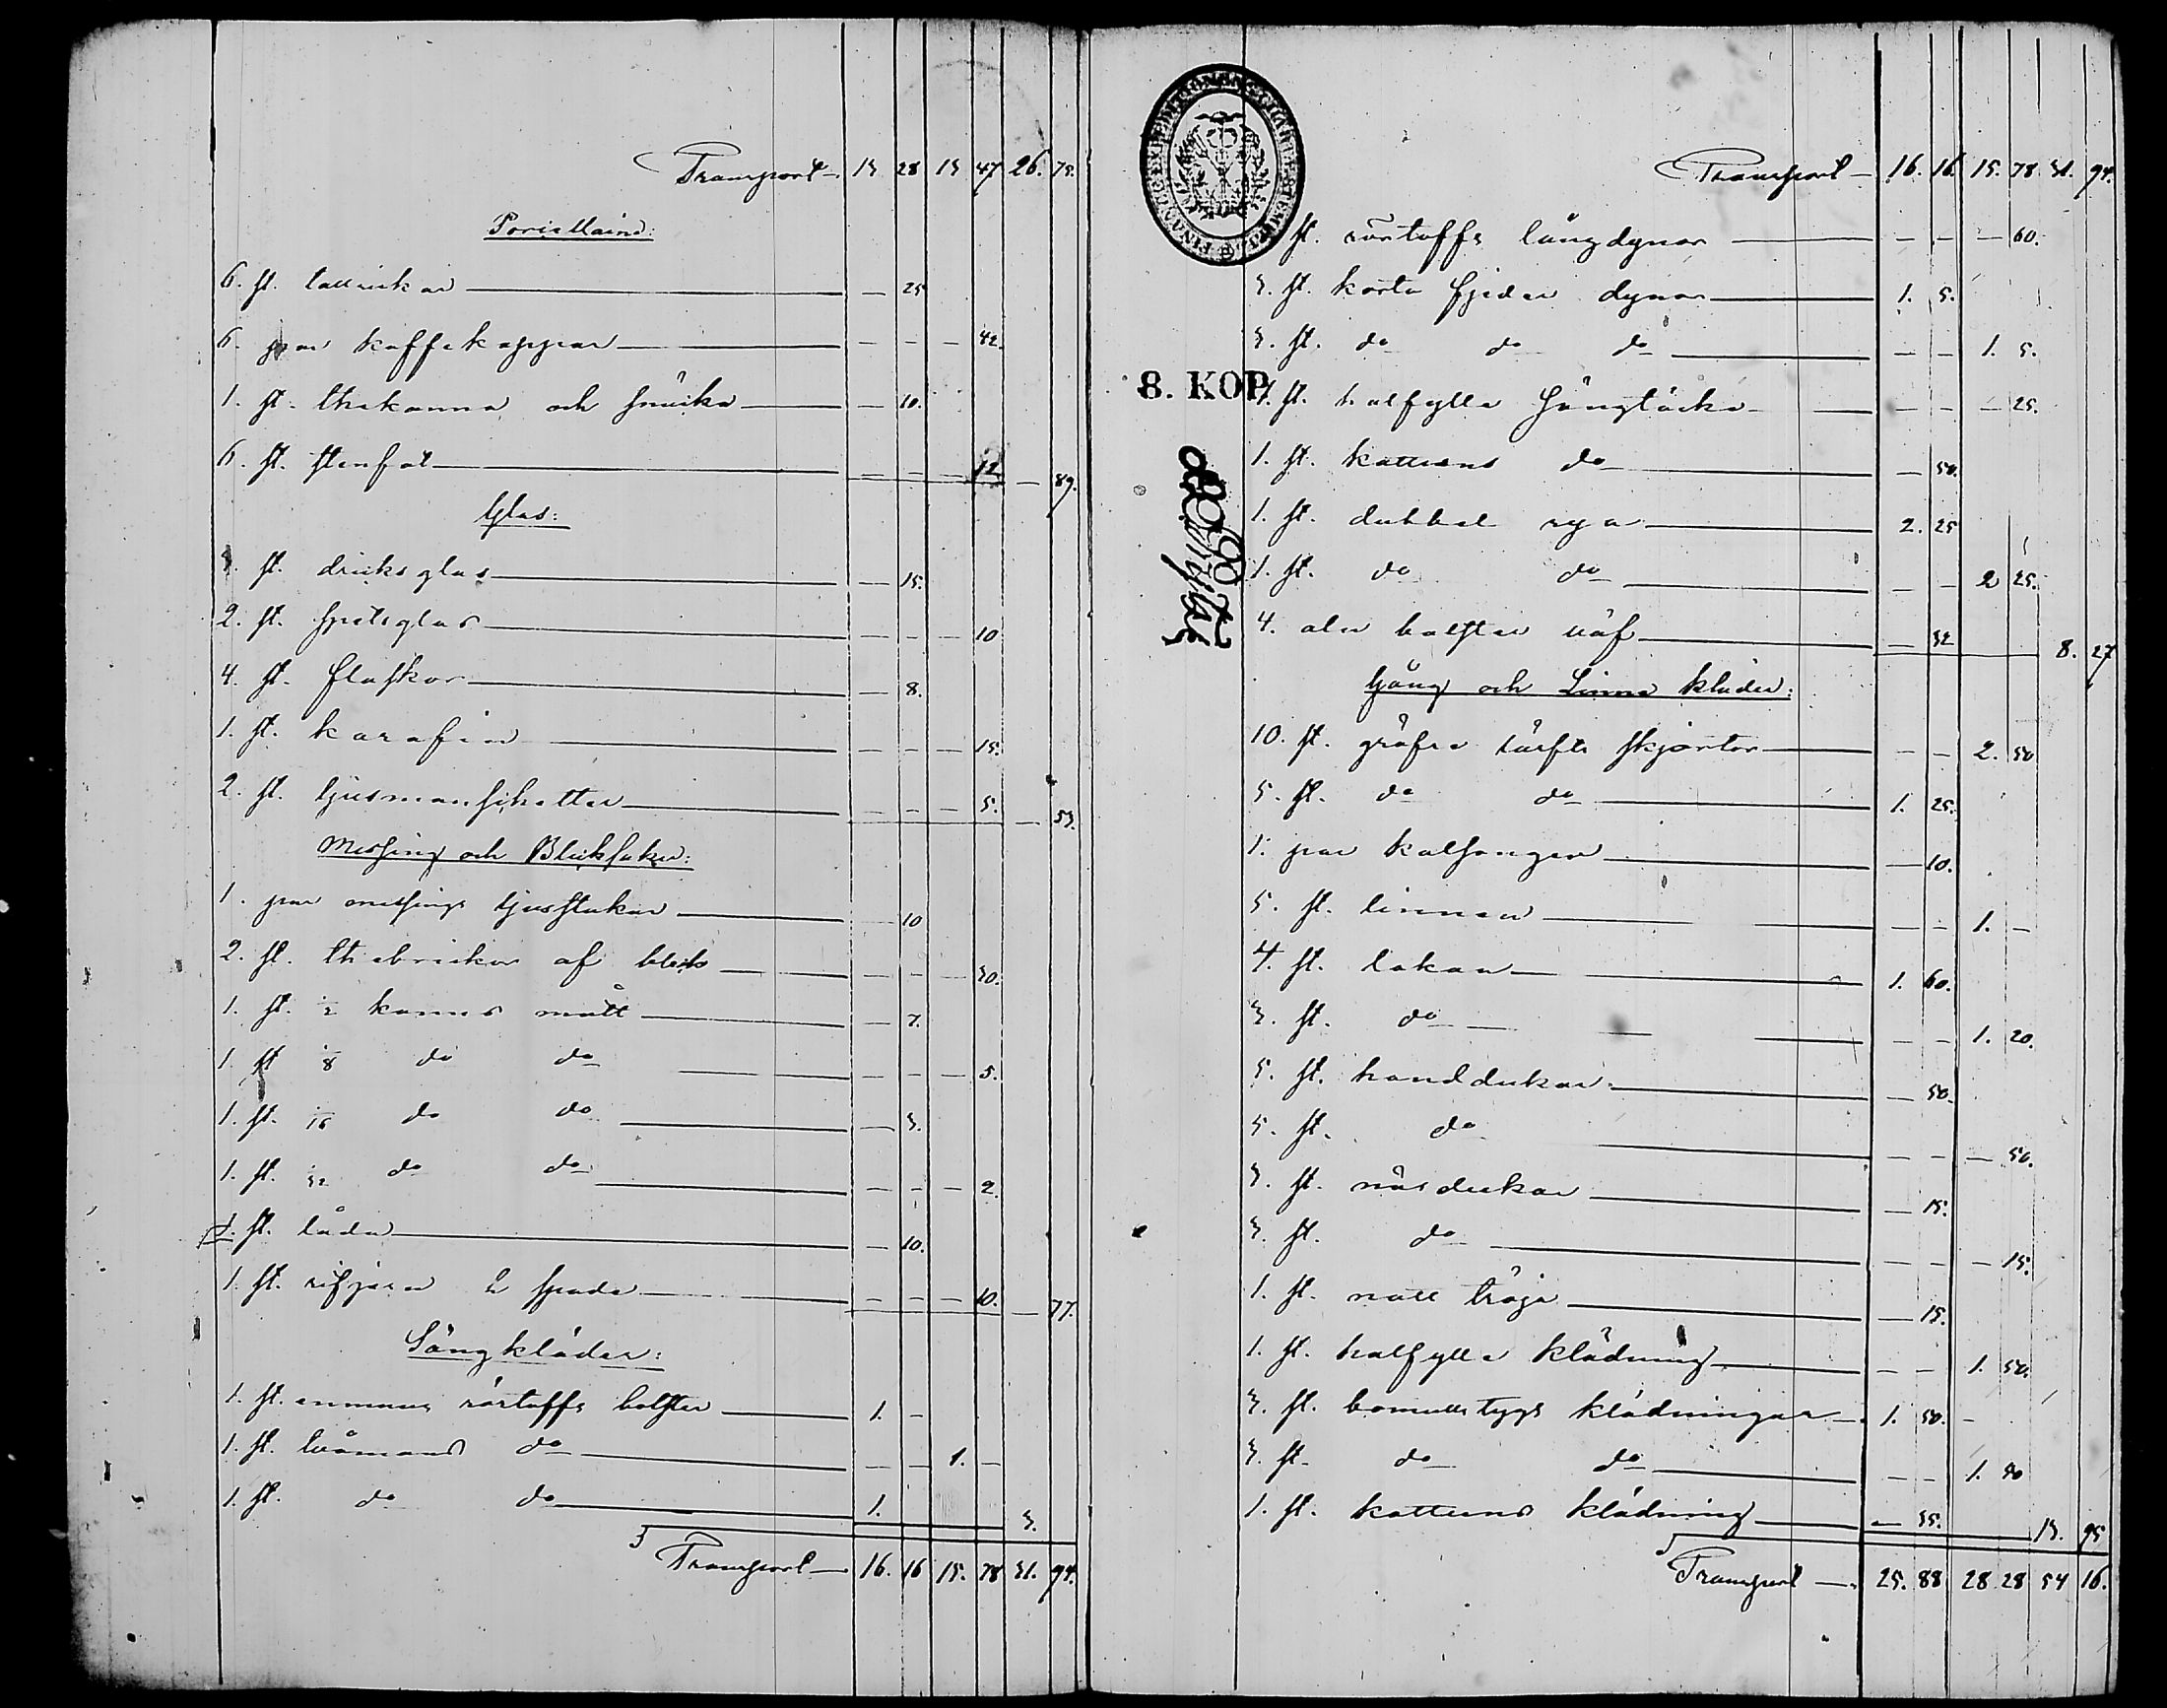 Transport — 13 28 13 47 26. 75.
Porcellaind:
6. st. tallrikar — 25
6. par kaffekoppar — 42.
1. st. thekanna och snäcka — 10.
6. st. stenfat — 12 — 89.
Glas:
3. st. dricksglas — 15.
2. st. spetsglas — 10
4. st. flaskor — 8.
1. st. karafin — 15.
2. st. ljusmanschetter — 5. — 53.
Messing och Bleksaker:
1. par messings ljusstakar — 10
2. st. thebrickor af bleck — 30.
1. st. ½ kanns mått — 7.
1 st ⅛ do do — 5.
1. st. 1/16 do do — 3.
1. st. 1/32 do do — 2.
1. st. låda — 10.
1. st. rifjern & spade — 10. — 77.
Sängkläder:
1. st. enmans rörtoffs bolster — 1. —
1. st. tvåmans do — 1. —
1. st. do do — 1. 3.
Transport — 16. 16 15. 78 31. 94.
FINANCE EXPEDITIONENS CHARTÆ STEMPEL
8. KOP.
Transport — 16. 16. 15. 78 31. 94.
st. rörtoffs långdynor — 60.
3. st. korta fjeder dynor — 1. 5.
3. st. do do do — 1. 5.
1. st. halfylle sängtäcke — 25.
1. st. kattuns do — 50.
1. st. dubbel rya — 2. 25
1. st. do do — 2 25.
4. aln bolster väf — 32 8. 27
Gång och Linne kläder:
10. st. gröfre lärfts skjortor — 2. 50
5. st. do do — 1. 25.
1. par kalsonger — 10.
5. st. linnen — 1. —
4. st. lakan — 1. 60.
3. st. do — 1. 20.
5. st. handdukar — 50.
5. st. do — 50.
3. st. näsdukar — 15.
3. st. do — 15.
1. st. natt tröja — 15.
1. st. halfylle klädning — 1. 50.
3. st. bomulls tygs klädningar — 1. 50. —
3. st. do do — 1. 50
1. st. kattuns klädning — 35. 13. 95
Transport — 25. 88 28 28 54 16.